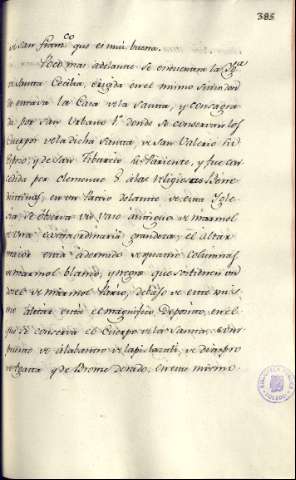 385
de San Fran.co que es mui buena.
Poco mas adelante se encuentra la Ygl.a
de Santa Cecilia, erigida en el mismo sitio don
de estava la Casa de la Santa, y consagra
da por San Urbano 1.o donde se conservan los
Cuerpos de la dicha Santa, de San Valerio su
Esposo, y de San Tiburcio su Pariente, y fue con
cedida por Clemente 8. à las Religiosas Bene
dictinas, en un Patio delante de esta Ygle
sia, se observa un vaso antiguo de marmol
de una extraordinaria grandeza; el altar
maior està adornado de quatro columnas
de marmol blanco, y negro que sostienen un
de marmol Pario, debaxo de este mis
mo altar està el magnifico Deposito, en el
que se conserva el Cuerpo de la Santa,
de alabastro de lapislazuli, de diaspro
de Agatta y de Bronce dorado, en este mismo
BIBLIOTECA
TOLEDO